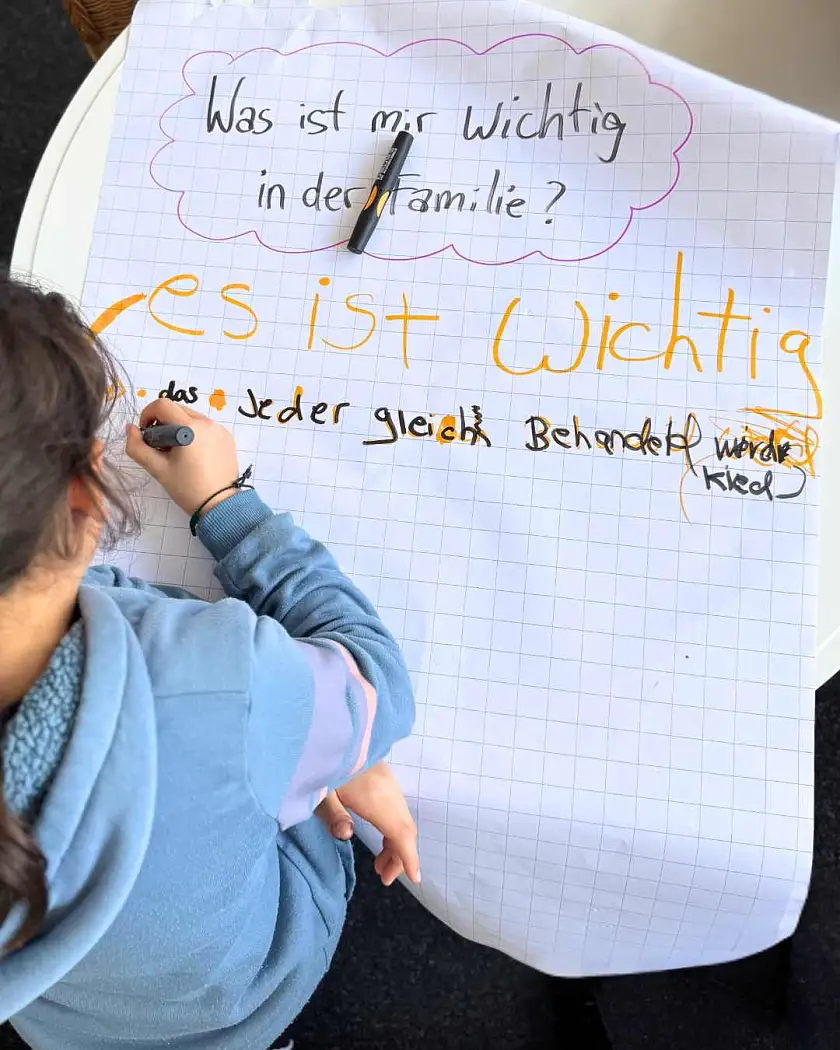 Was ist mir Wichtig
in der Familie?
es ist wichtig
das Jeder gleich Behandelt